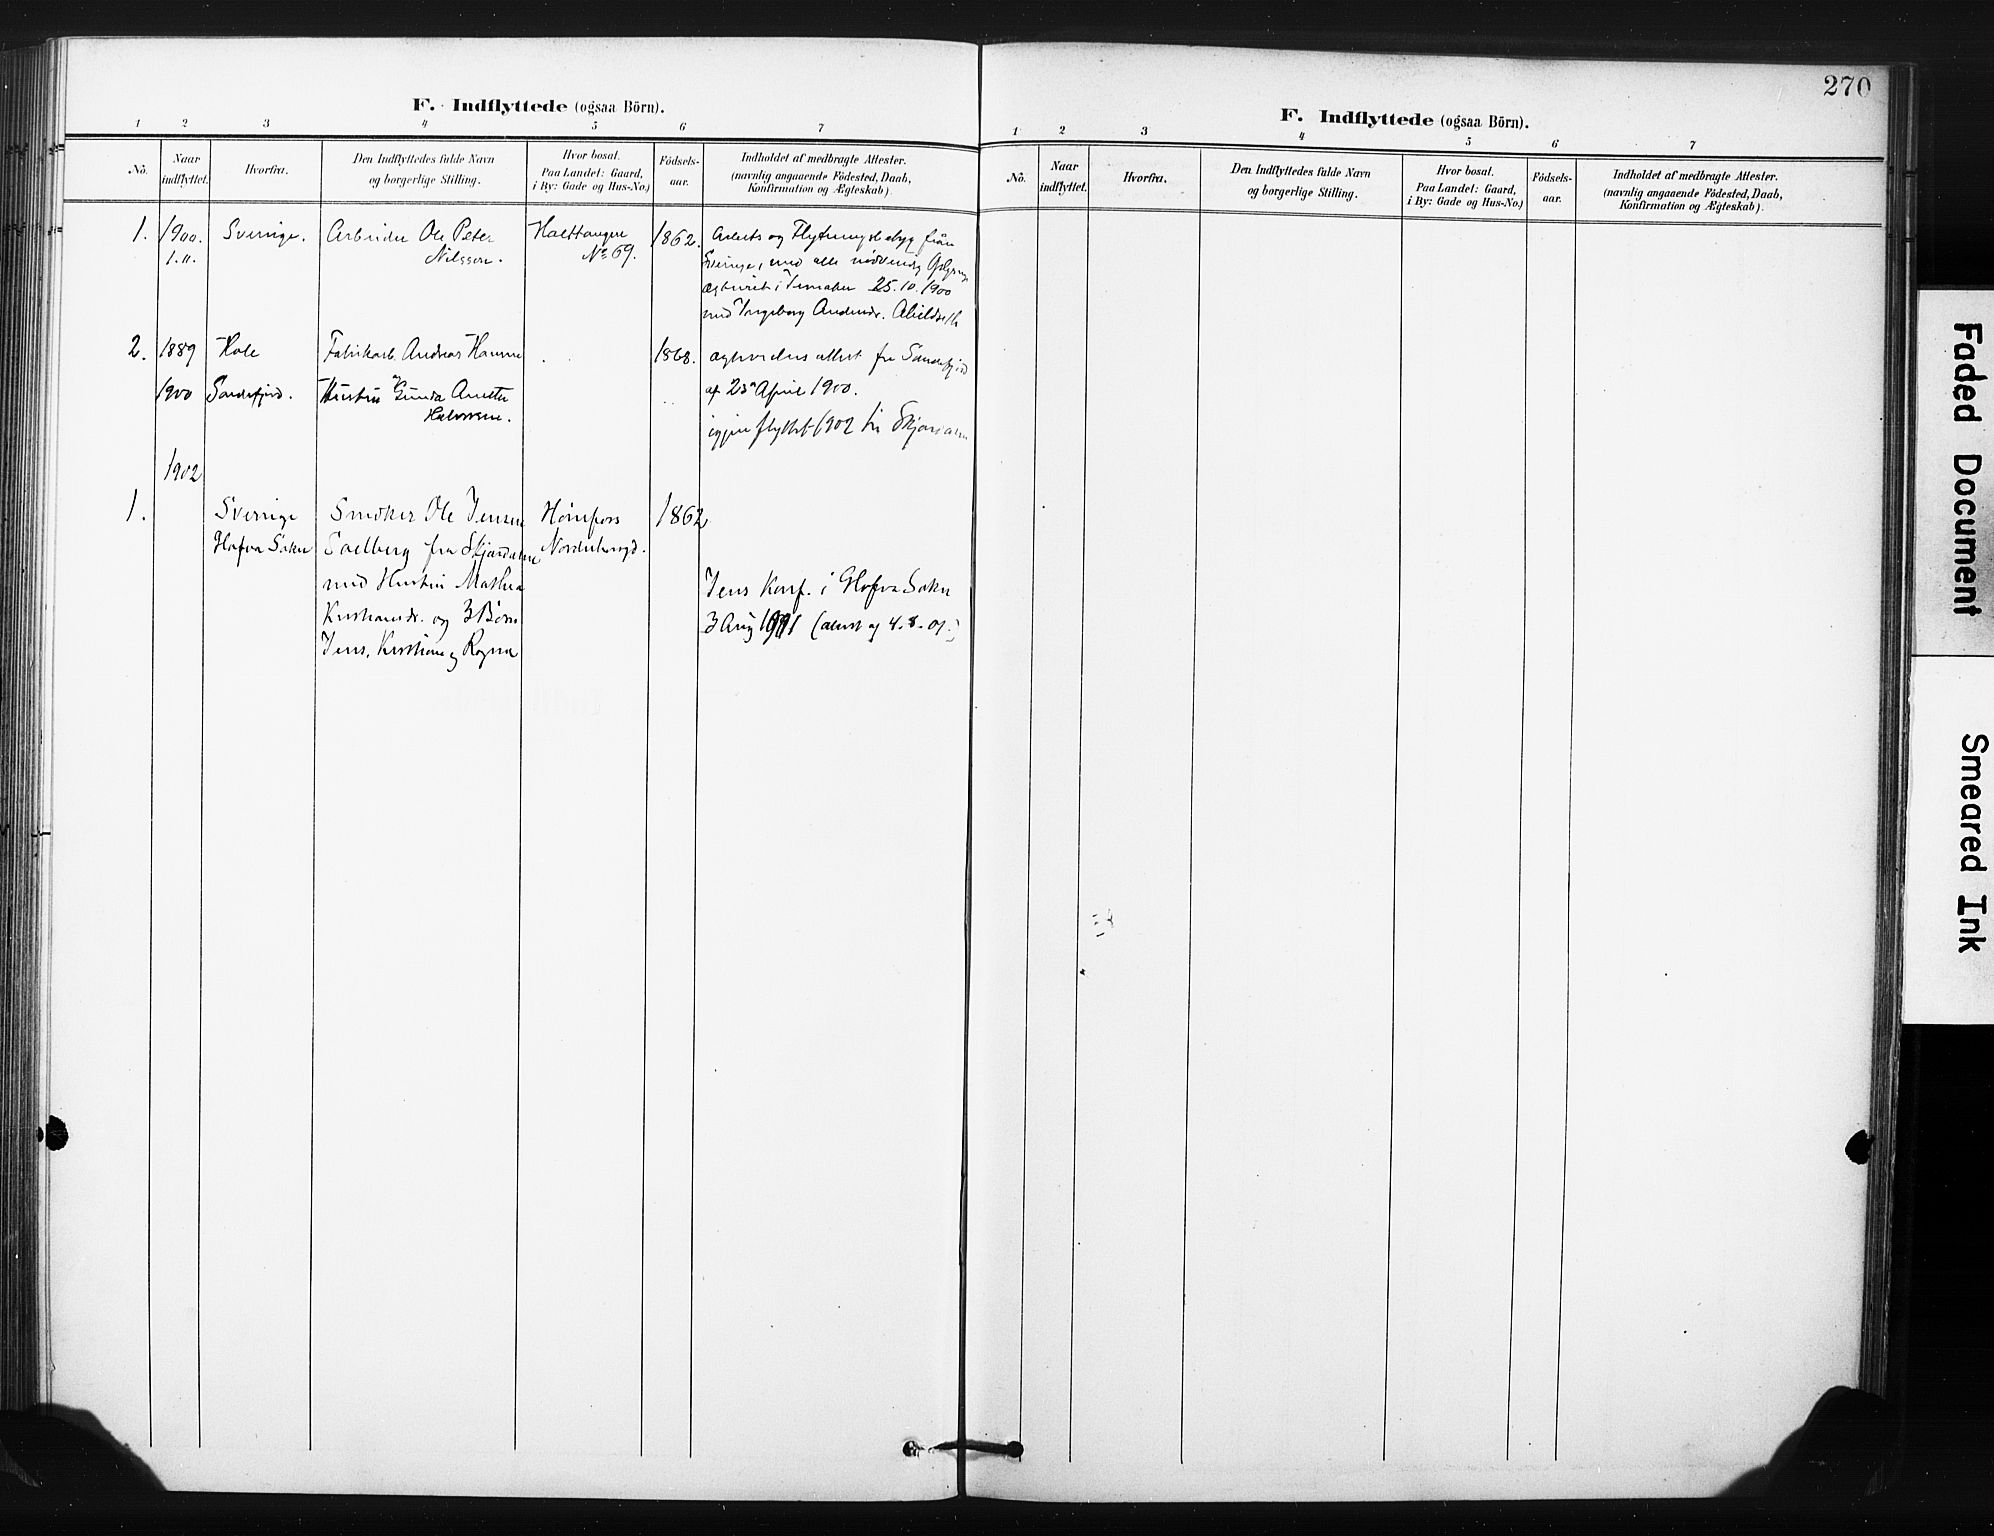 F. Indflyttede (ogsaa Börn).
1 2 3 4 5 6 7
No.
Naar
indflyttet.
Hvorfra.
Den Indflyttedes fulde Navn
og borgerlige Stilling.
Hvor bosat.
Paa Landet: Gaard,
i By: Gade og Hus-No.)
Fódsels-
aar.
Indholdet af medbragte Attester.
(navnlig angaaende Fódested, Daab,
Konfirmation og Ægteskab).
1. 1900. Sverige. Arbeider Ole Peter 1862.
1.11. Nilsson. No 69.
Sverige, med alle
25.10.1900
med Ingeborg Andersdr.
2. 1889 Hole Fabrikarb. Andreas Hansen 1868. attest fra Sandefjord
1900 Sandefjord. Hustru Gunda Anette af 23 April 1900.
Halvorsen.
igjen flyttet 1902 til Skjærdalen
1902
1. Sverige Smøker Ole Jensen Hønefoss 1862
Hofva Sokn Soelberg fra Skjærdalen Norderhougd.
med Hustru Mathea
Jens Konf. i Hofva Sokn
Kristiansdr. og 3 Børn
3 Aug 1901 (attest af 4.8.01.)
Jens, Kristiane og Ragna
270
F. Indflyttede (ogsaa Börn).
1 2 3 4 5 6 7
No.
Naar
indflyttet.
Hvorfra.
Den Indflyttedes fulde Navn
og borgerlige Stilling.
Hvor bosat.
Paa Landet: Gaard,
i By: Gade og Hus-No.)
Fódsels-
aar.
Indholdet af medbragte Attester.
(navnlig angaaende Fódested, Daab,
Konfirmation og Ægteskab).
Faded Document
Smeared Ink